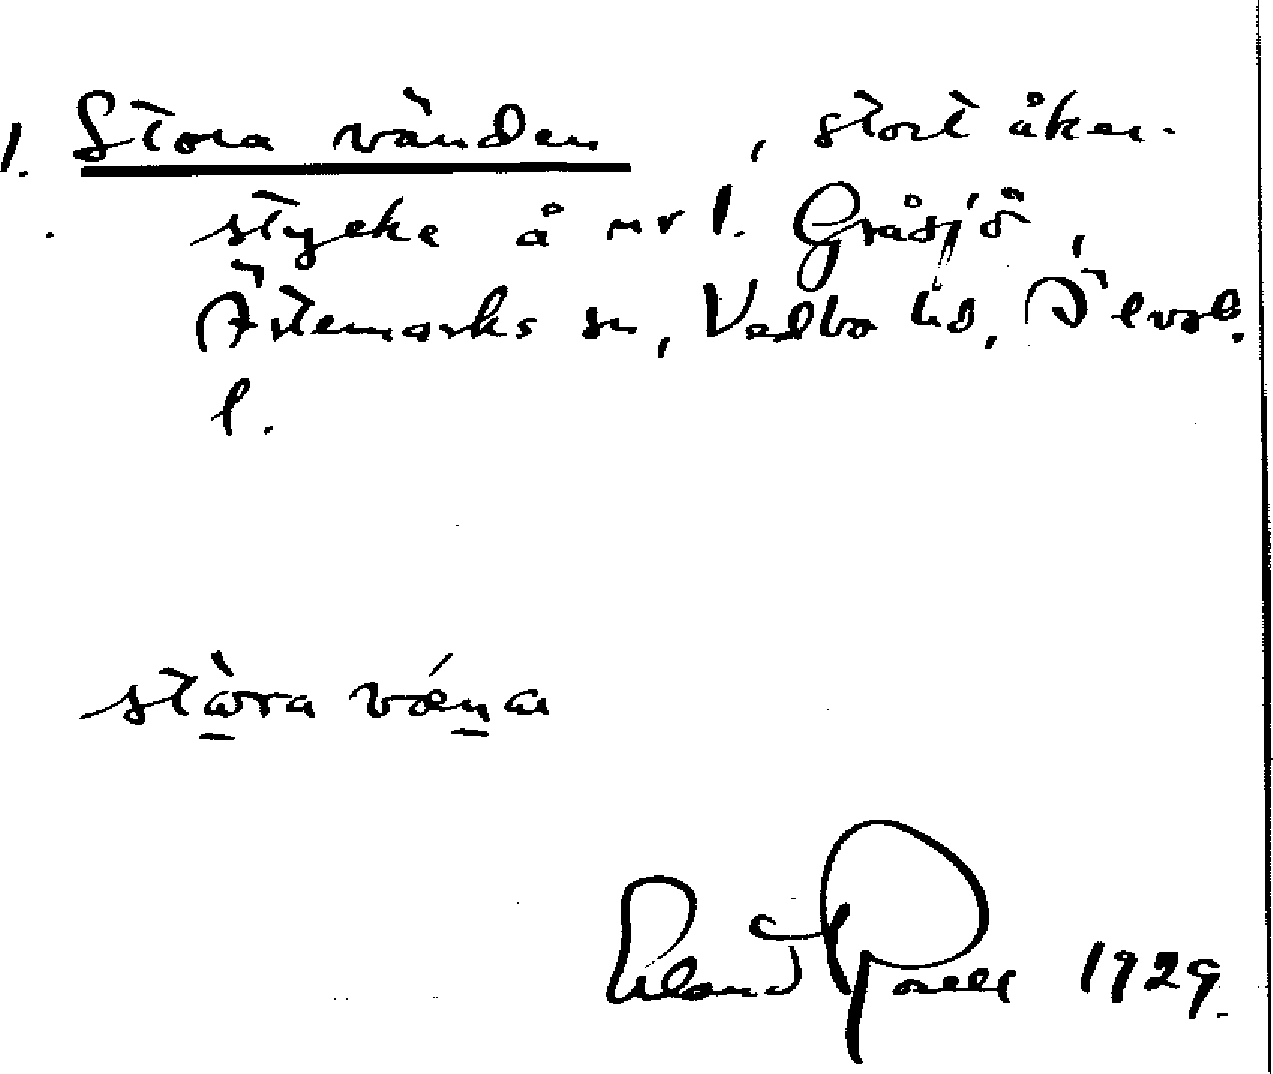 1. Stora vänden, stort åker-
stycke å nr 1. Gråsjö,
Ärtemarks sn, Vedbo hd, Älvsb.
l.
stàra vǽna
1929.